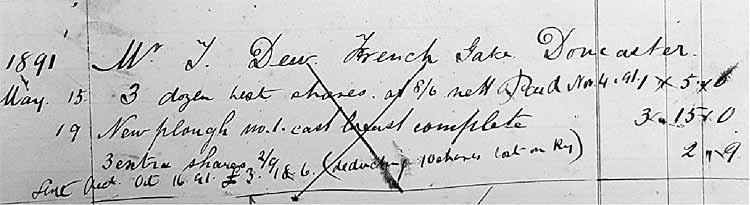 1891 Mr T. Dew. French Gate Doncaster.
May. 15. 3 dozen best shares. at 8/6 nett Paid Nov. 4. 91 1 x 5 x 0
19 New plough no. 1. cast breast complete 3 " 15 x 0
3 extra shares 2/9 2 " 9
Sent Acct. Oct 16 91. £3. 18. 6. (deducting 10 shares lost on Ry)